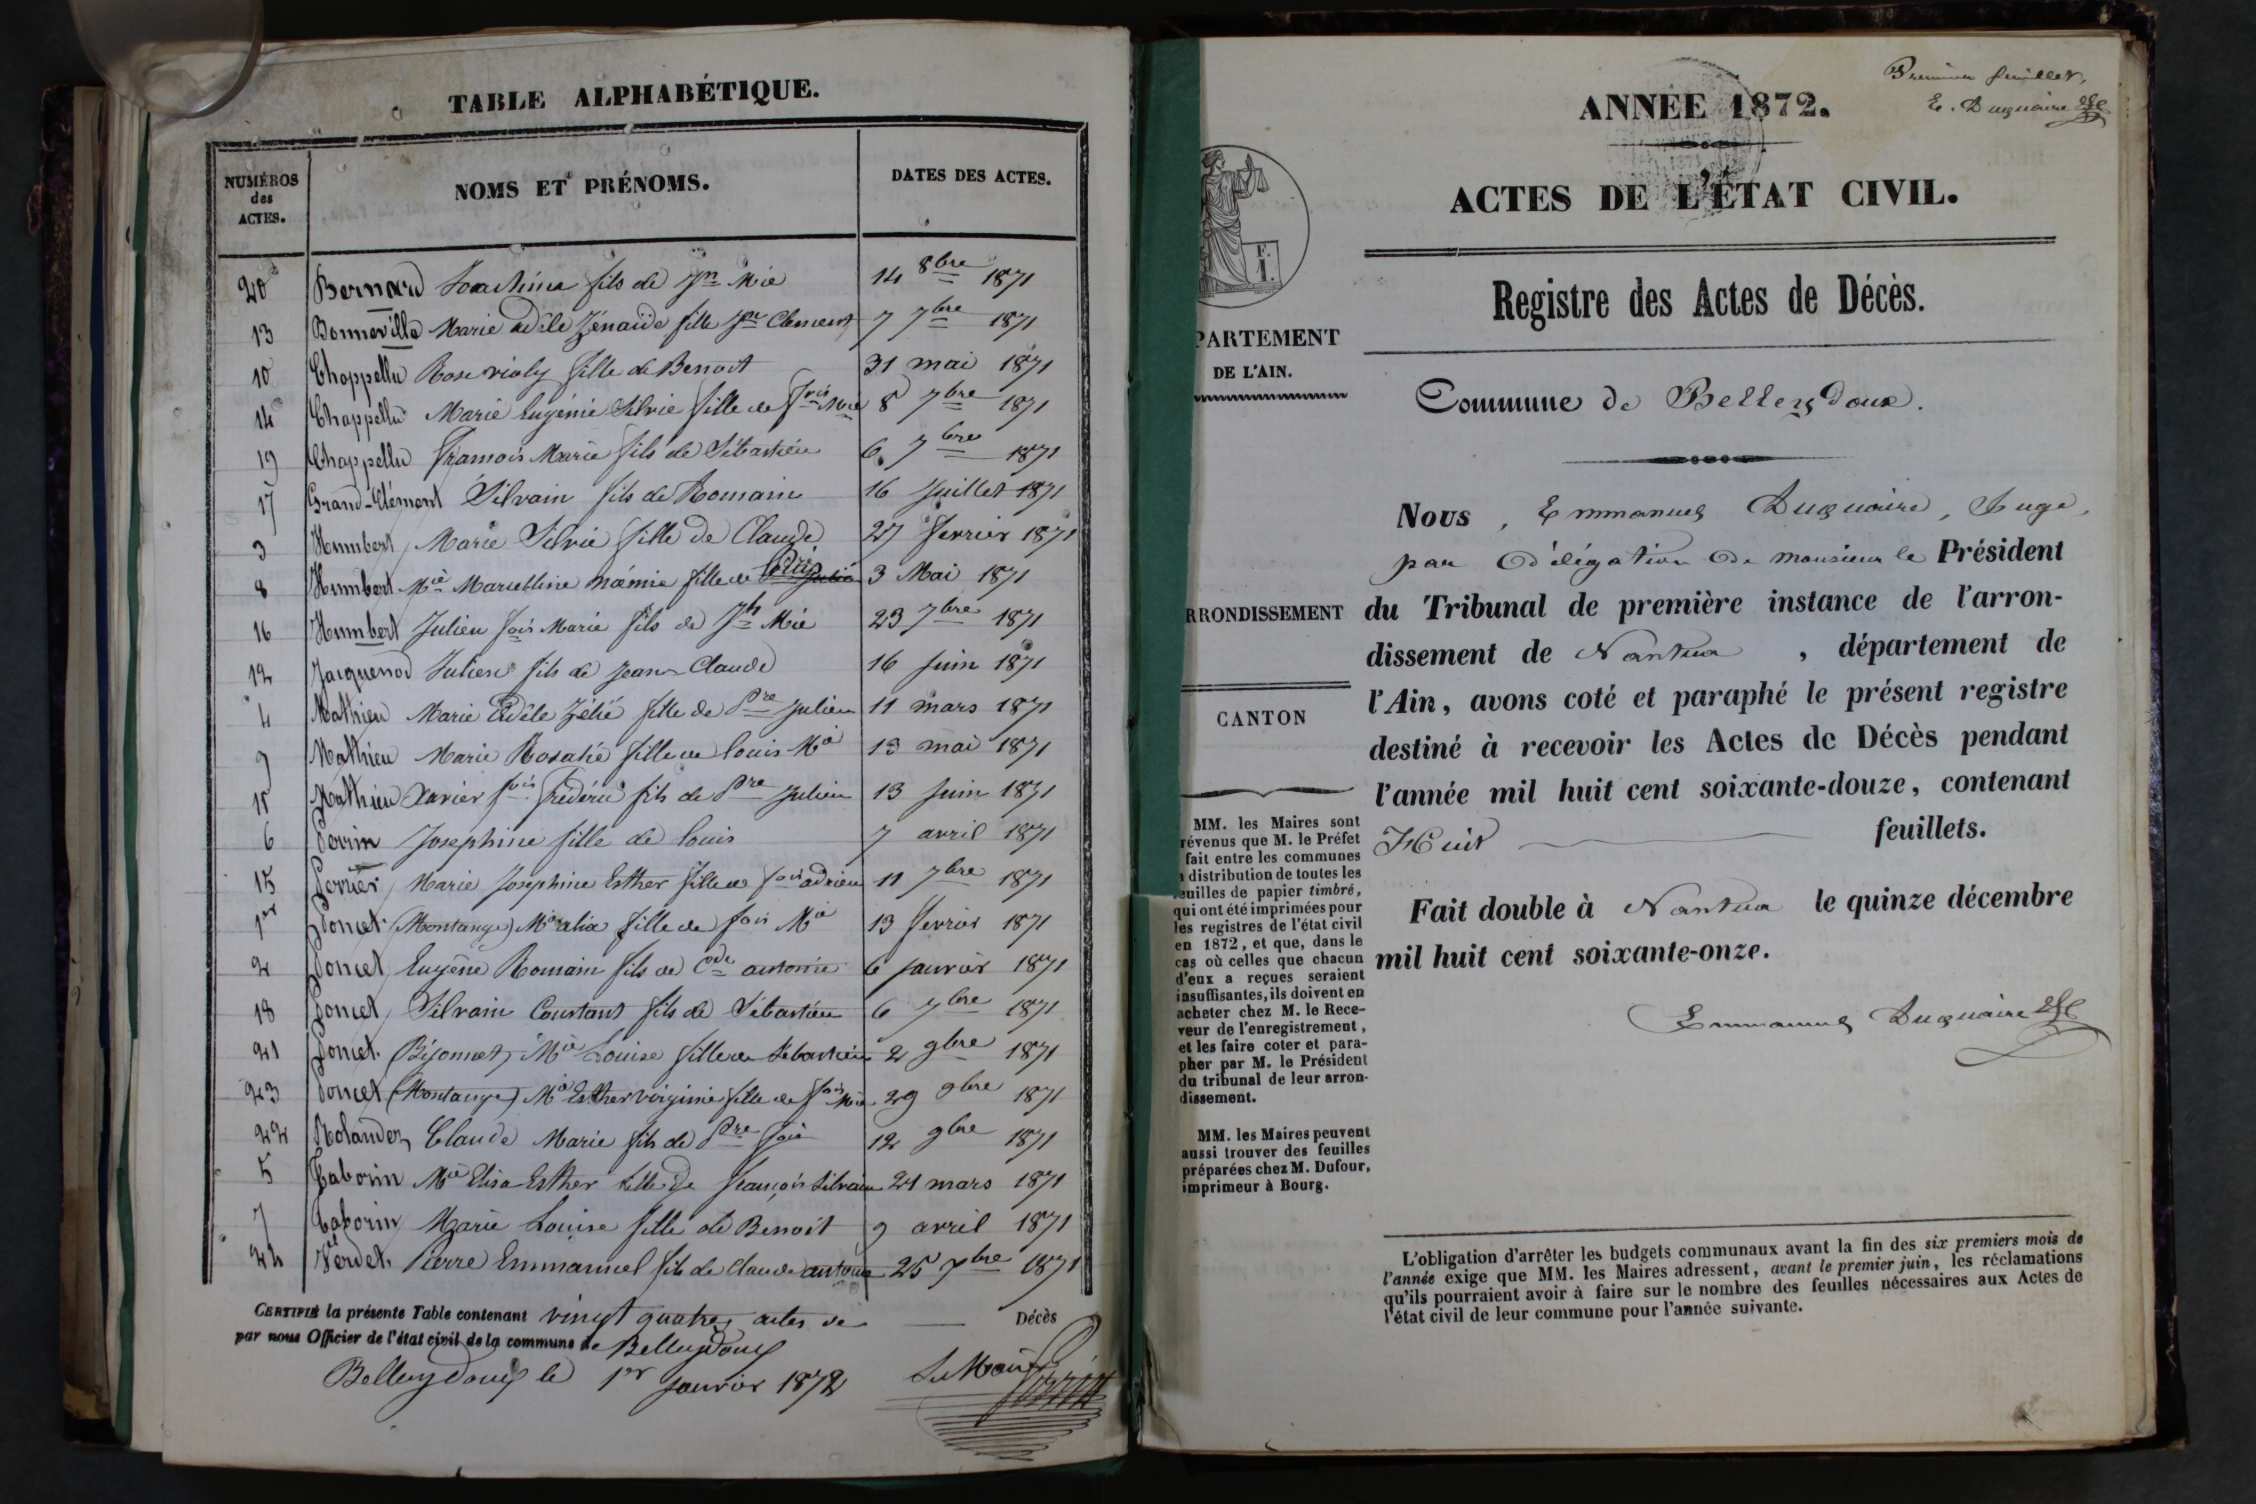 TABLE ALPHABÉTIQUE.
NUMÉROS
des
ACTES.
NOMS ET PRÉNOMS.
DATES DES ACTES.
20 Bernard fils de Jn Mie 14 8bre 1871
13 Bonneville Marie adèle Zénaïde fille Clement 7 7bre 1871
10 Chappellu Rose fille de Benoit 31 mai 1871
14 Chappellu Marie Eugénie Silvie fille de frois Mie 8 7bre 1871
19 Chappellu François Marie fils de Sébastien 6 7bre 1871
17 Grand-Clément Silvain fils de Romain 16 Juillet 1871
3 Humbert Marie Silvie fille de Claude 27 fevrier 1871
8 Humbert Mie Marcelline Noémie fille de 3 Mai 1871
16 Humbert Julien fois Marie fils de Jh Mie 23 7bre 1871
12 Jacquenod Julien fils de Jean Claude 16 Juin 1871
4 Mathieu Marie Adèle Zélié fille de Pre Julien 11 mars 1871
9 Mathieu Marie Rosalie fille de louis Mie 13 mai 1871
11 Mathieu Xavier fois frédéric fils de Pre Julien 13 Juin 1871
6 Perrin Josephine fille de louis 7 avril 1871
15 Perrier Marie Josephine Esther fille de fois adrien 11 7bre 1871
1er Poncet (Montange) Mie alix fille de fois Mie 13 fevrier 1871
2 Poncet Eugène Romain fils de Cde antoine 6 Janvier 1871
18 Poncet Silvain Constant fils de Sébastien 6 7bre 1871
21 Poncet (Bijonnet) Mie Louise fille de Sebastien 2 9bre 1871
23 Poncet (Montange) Mie Esther virginie fille de fois Mie 29 9bre 1871
22 Rolandez Claude Marie fils de Pre fois 12 9bre 1871
5 Taborin Mie Elisa Esther fille de françois Silvain 21 mars 1871
7 Taborin Marie Louise fille de Benoit 9 avril 1871
24 Verdet Pierre Emmanuel fils de Claude antoine 25 7bre 1871
CERTIFIÉ la présente Table contenant vingt quatre actes de Décès
par nous Officier de l'état civil de la commune de Belleydoux
Belleydoux le 1er Janvier 1872 Le Maire
Perrin
Premier feuillet,
E. Duquaire
ANNÉE 1872.
ACTES DE L'ÉTAT CIVIL.
Registre des Actes de Décès.
F.
1.
PARTEMENT
DE L'AIN.
RRONDISSEMENT
CANTON
MM. les Maires sont
révenus que M. le Préfet
fait entre les communes
distribution de toutes les
euilles de papier timbré,
qui ont été imprimées pour
les registres de l'état civil
en 1872, et que, dans le
cas où celles que chacun
d'eux a reçues seraient
insuffisantes, ils doivent en
acheter chez M. le Rece-
veur de l'enregistrement,
et les faire coter et para-
pher par M. le Président
du tribunal de leur arron-
dissement.
MM. les Maires peuvent
aussi trouver des feuilles
préparées chez M. Dufour,
imprimeur à Bourg.
Commune de Belleydoux.
Nous, Emmanuel Duquaire, Juge,
par délégation de monsieur le Président
du Tribunal de première instance de l'arron-
dissement de Nantua, département de
l'Ain, avons coté et paraphé le présent registre
destiné à recevoir les Actes de Décès pendant
l'année mil huit cent soixante-douze, contenant
Huit feuillets.
Fait double à Nantua le quinze décembre
mil huit cent soixante-onze.
Emmanuel Duquaire
L'obligation d'arrêter les budgets communaux avant la fin des six premiers mois de
l'année exige que MM. les Maires adressent, avant le premier juin, les réclamations
qu'ils pourraient avoir à faire sur le nombre des feuilles nécessaires aux Actes de
l'état civil de leur commune pour l'année suivante.